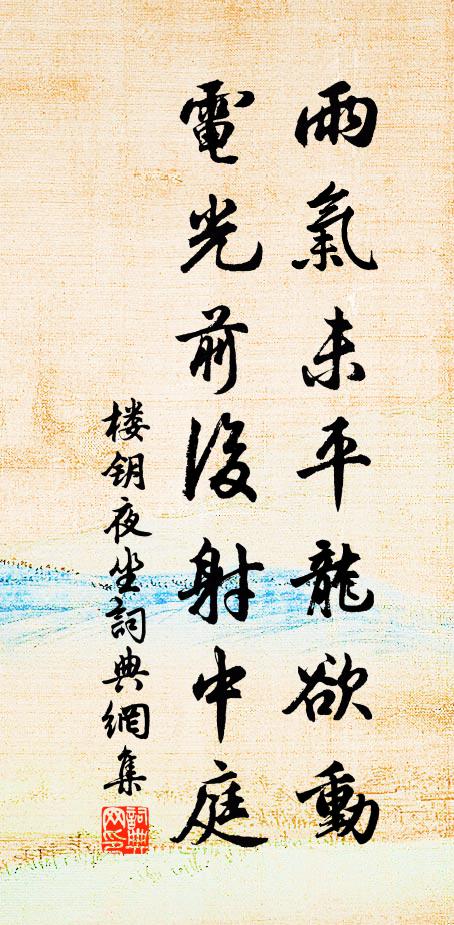 雨氣未平龍欲動
電光前後射中庭
楼钥夜坐詞典網集
詞典网印